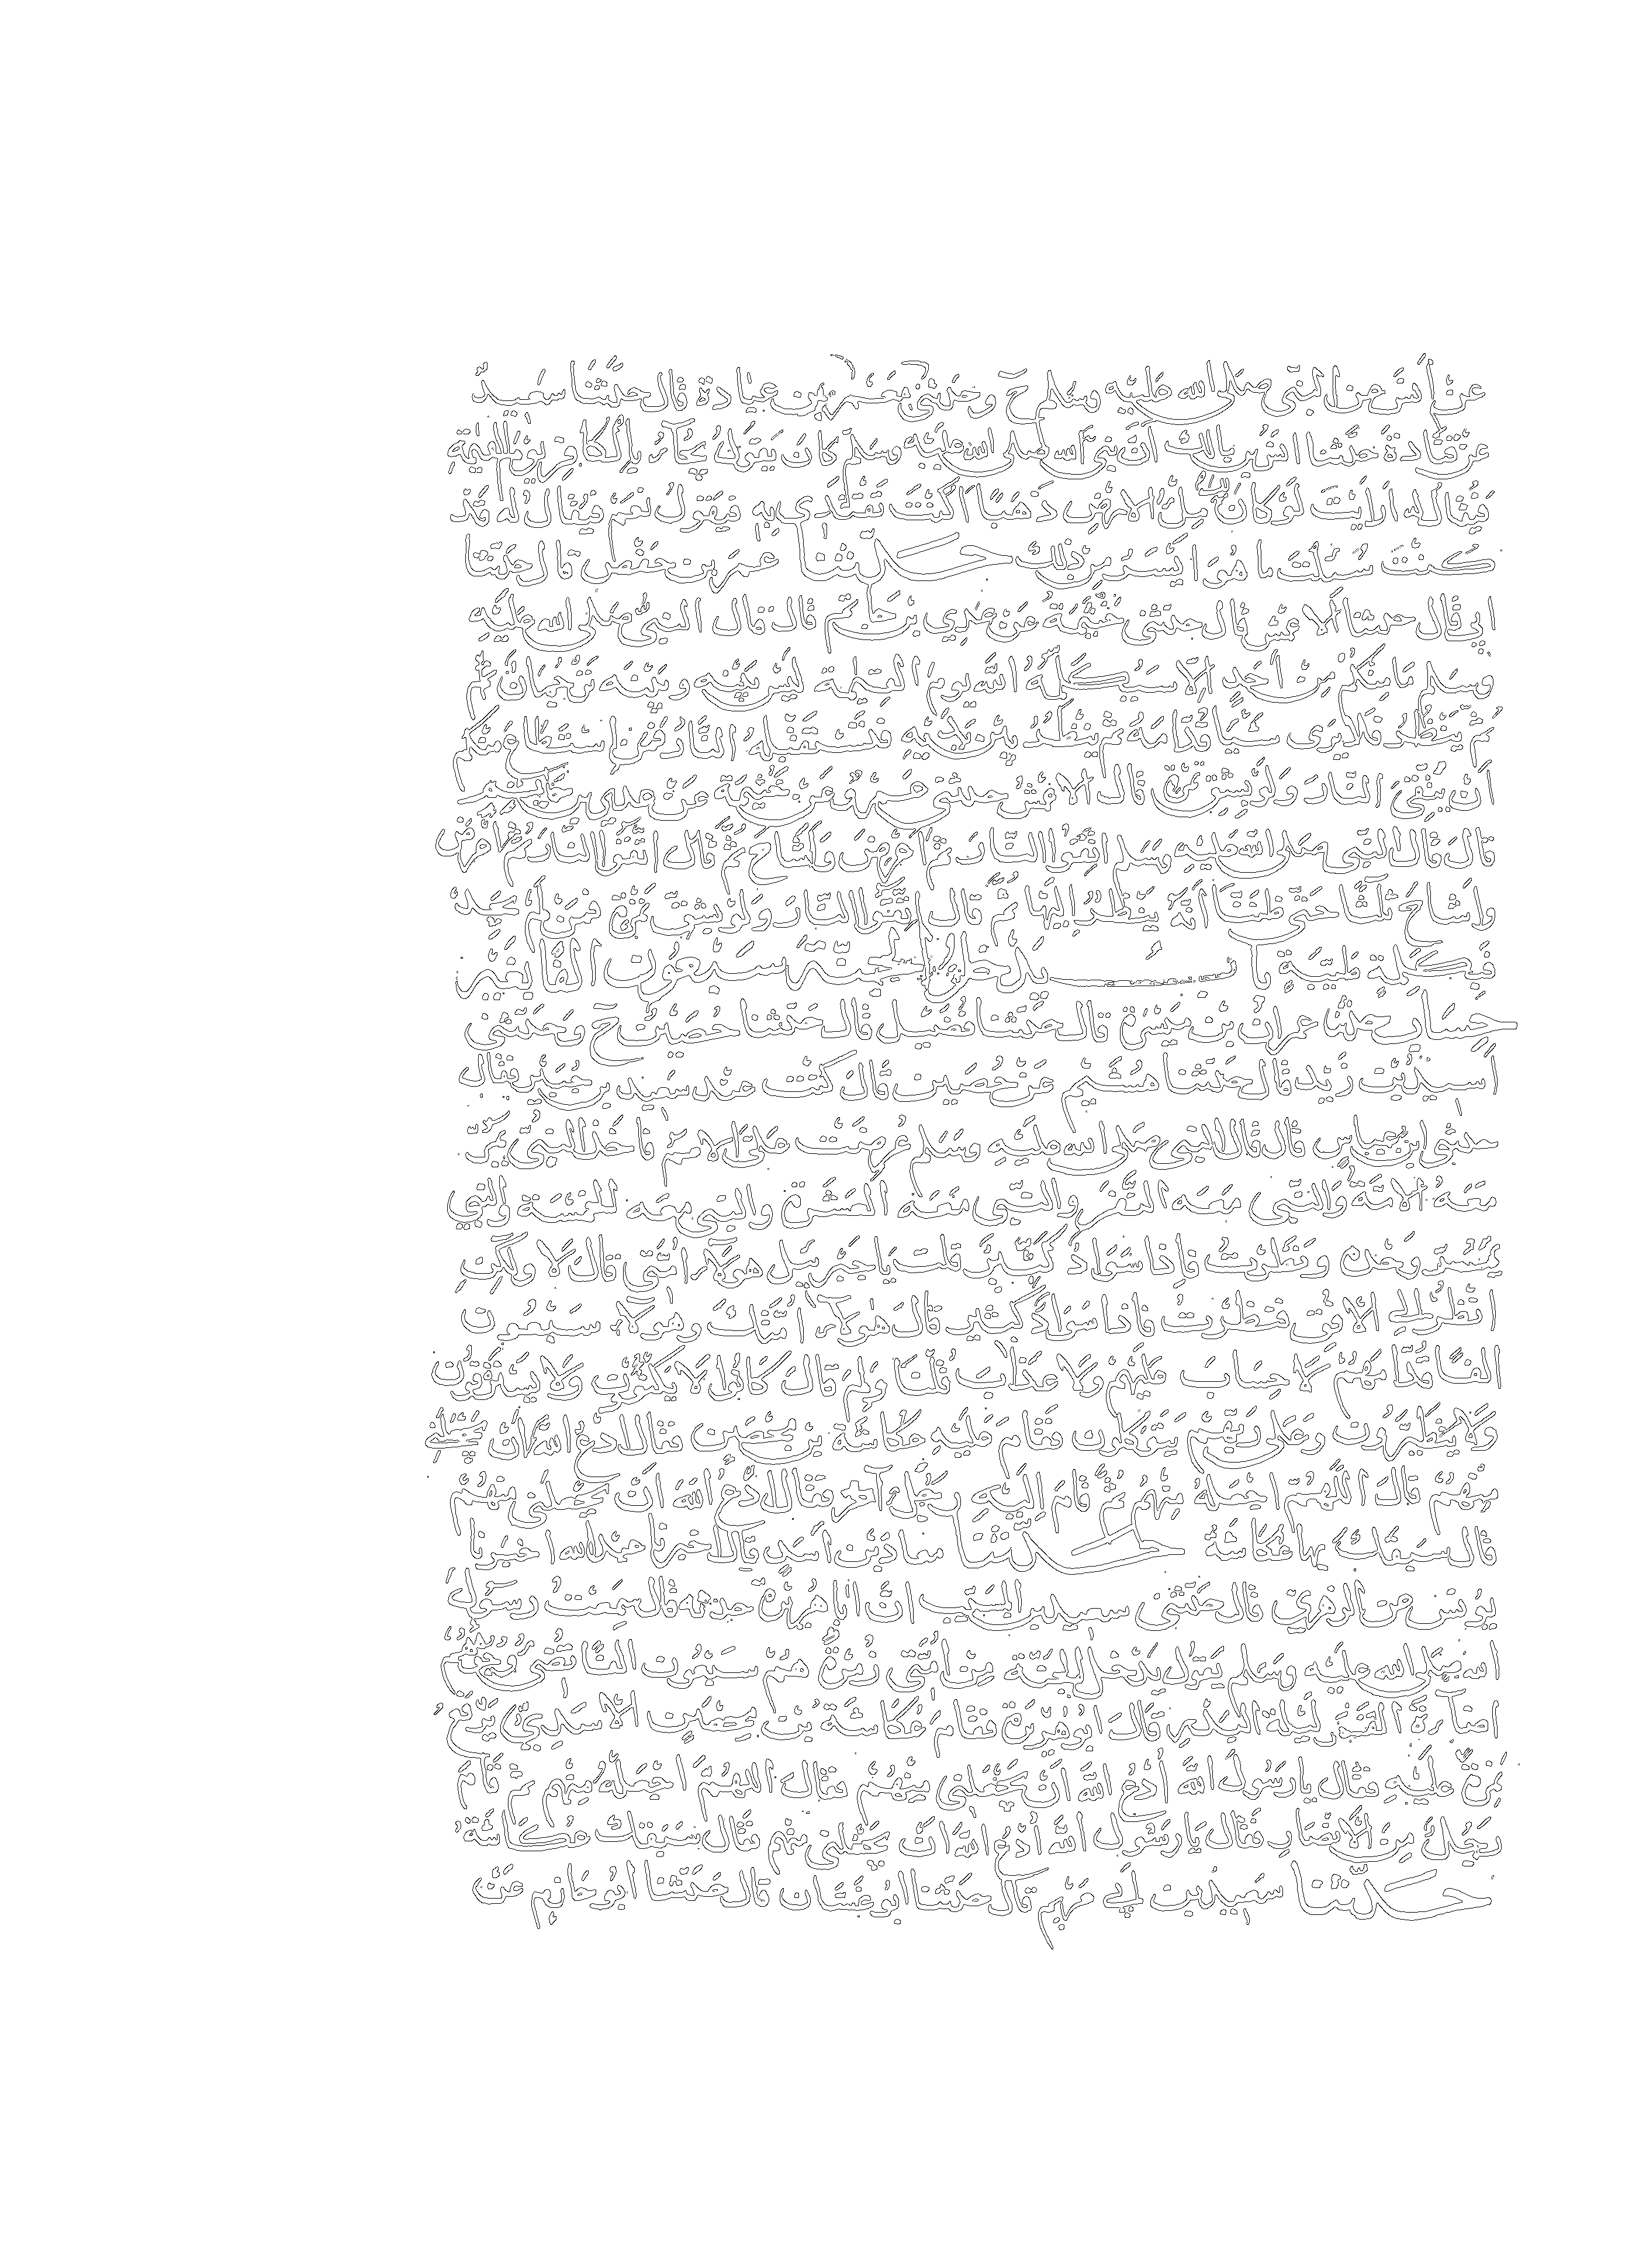 عن أنس عن النبي صلى الله عليه وسلم ح وحدثني معمر بن عبادة قال حدثنا سعيد
عن قتادة حدثنا انس بن مالك أن نبي الله صلى الله عليه وسلم كان يقول يجاء بالكافر يوم القيمة
فيقال له ارايت لو كان لك ملء الارض ذهبا اكنت تفتدي به فيقول نعم فيقال له قد
كنت سئلت ما هو ايسر من ذلك حدثنا عمر بن حفص قال حدثنا
ابي قال حدثنا الاعمش قال حدثني خيثمة عن عدي بن حاتم قال قال النبي صلى الله عليه
وسلم ما منكم من أحد إلا سيكلمه الله يوم القيمة ليس بينه وبينه ترجمان ثم
ثم ينظر فلا يرى شيئا قدامه ثم ينظر بين يديه فتستقبله النار فمن استطاع منكم
أن يتقي النار ولو بشق تمرة قال الاعمش حدثني عمرو عن خيثمة عن عدي بن حاتم
قال قال النبي صلى الله عليه وسلم اتقوا النار ثم اعرض واشاح ثم قال اتقوا النار ثم اعرض
واشاح ثلثا حتى ظننا أنه ينظر إليها ثم قال اتقوا النار ولو بشق تمرة فمن لم يجد
فبكلمة طيبة باب يدخل الجنة سبعون الفا بغير
حساب حدثنا عمران بن ميسرة قال حدثنا فضيل قال حدثنا حصين ح وحدثني
أسيد بن زيد قال حدثنا هشيم عن حصين قال كنت عند سعيد بن جبير فقال
حدثني ابن عباس قال قال النبي صلى الله عليه وسلم عرضت على الامم فاخذ النبي يمر
معه الامة والنبي معه النفر والنبي معه العشرة والنبي معه الخمسة والنبي
يمر وحده ونظرت فإذا سواد كبير قلت يا جبريل هولاء امتي قال لا ولكن
انظر إلى الافق فنظرت فاذا سواد كثير قال هولاء امتك وهولاء سبعون
الفا قدامهم لا حساب عليهم ولا عذاب قلنا ولم قال كانوا لا يكتوون ولا يسترقون
ولا يتطيرون وعلى ربهم يتوكلون فقام عليه عكاشة بن محصن فقال ادع الله ان يجعلني
منهم قال اللهم اجعله منهم ثم قام إليه رجل آخر فقال ادع الله ان يجعلني منهم
قال سبقك بها عكاشة حدثنا معاذ بن اسد قال اخبرنا عبد الله اخبرنا
يونس عن الزهري قال حدثني سعيد بن المسيب ان ابا هريرة حدثه قال سمعت رسول
الله صلى الله عليه وسلم يقول يدخل الجنة من أمتي زمرة هم سبعون الفا تضي وجوههم
اضاءة القمر ليلة البدر قال ابو هريرة فقام عكاشة بن محصن الأسدي يرفع
نمرة عليه فقال يا رسول الله أدع الله ان يجعلني منهم فقال اللهم اجعله منهم ثم قام
رجل من الانصار فقال يا رسول الله أدع الله ان يجعلني منهم فقال سبقك عكاشة
حدثنا سعيد بن أبي مريم قال حدثنا ابو غسان قال حدثنا ابو حازم عن